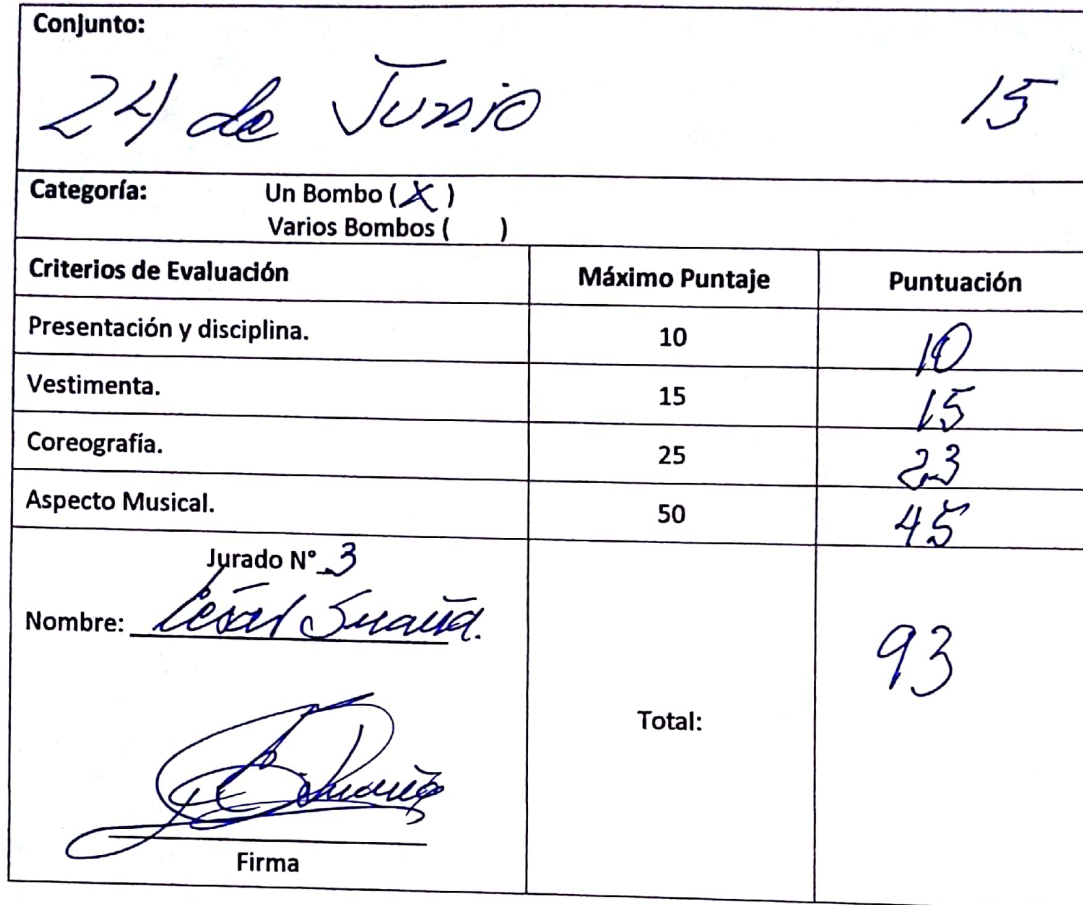 Conjunto:
24 de Junio 15
Categoría: Un Bombo ( X )
Varios Bombos ( )
Criterios de Evaluación Máximo Puntaje Puntuación
Presentación y disciplina. 10 10
Vestimenta. 15 15
Coreografía. 25 23
Aspecto Musical. 50 45
Jurado N° 3
Nombre: César Suaña.
Total: 93
Firma